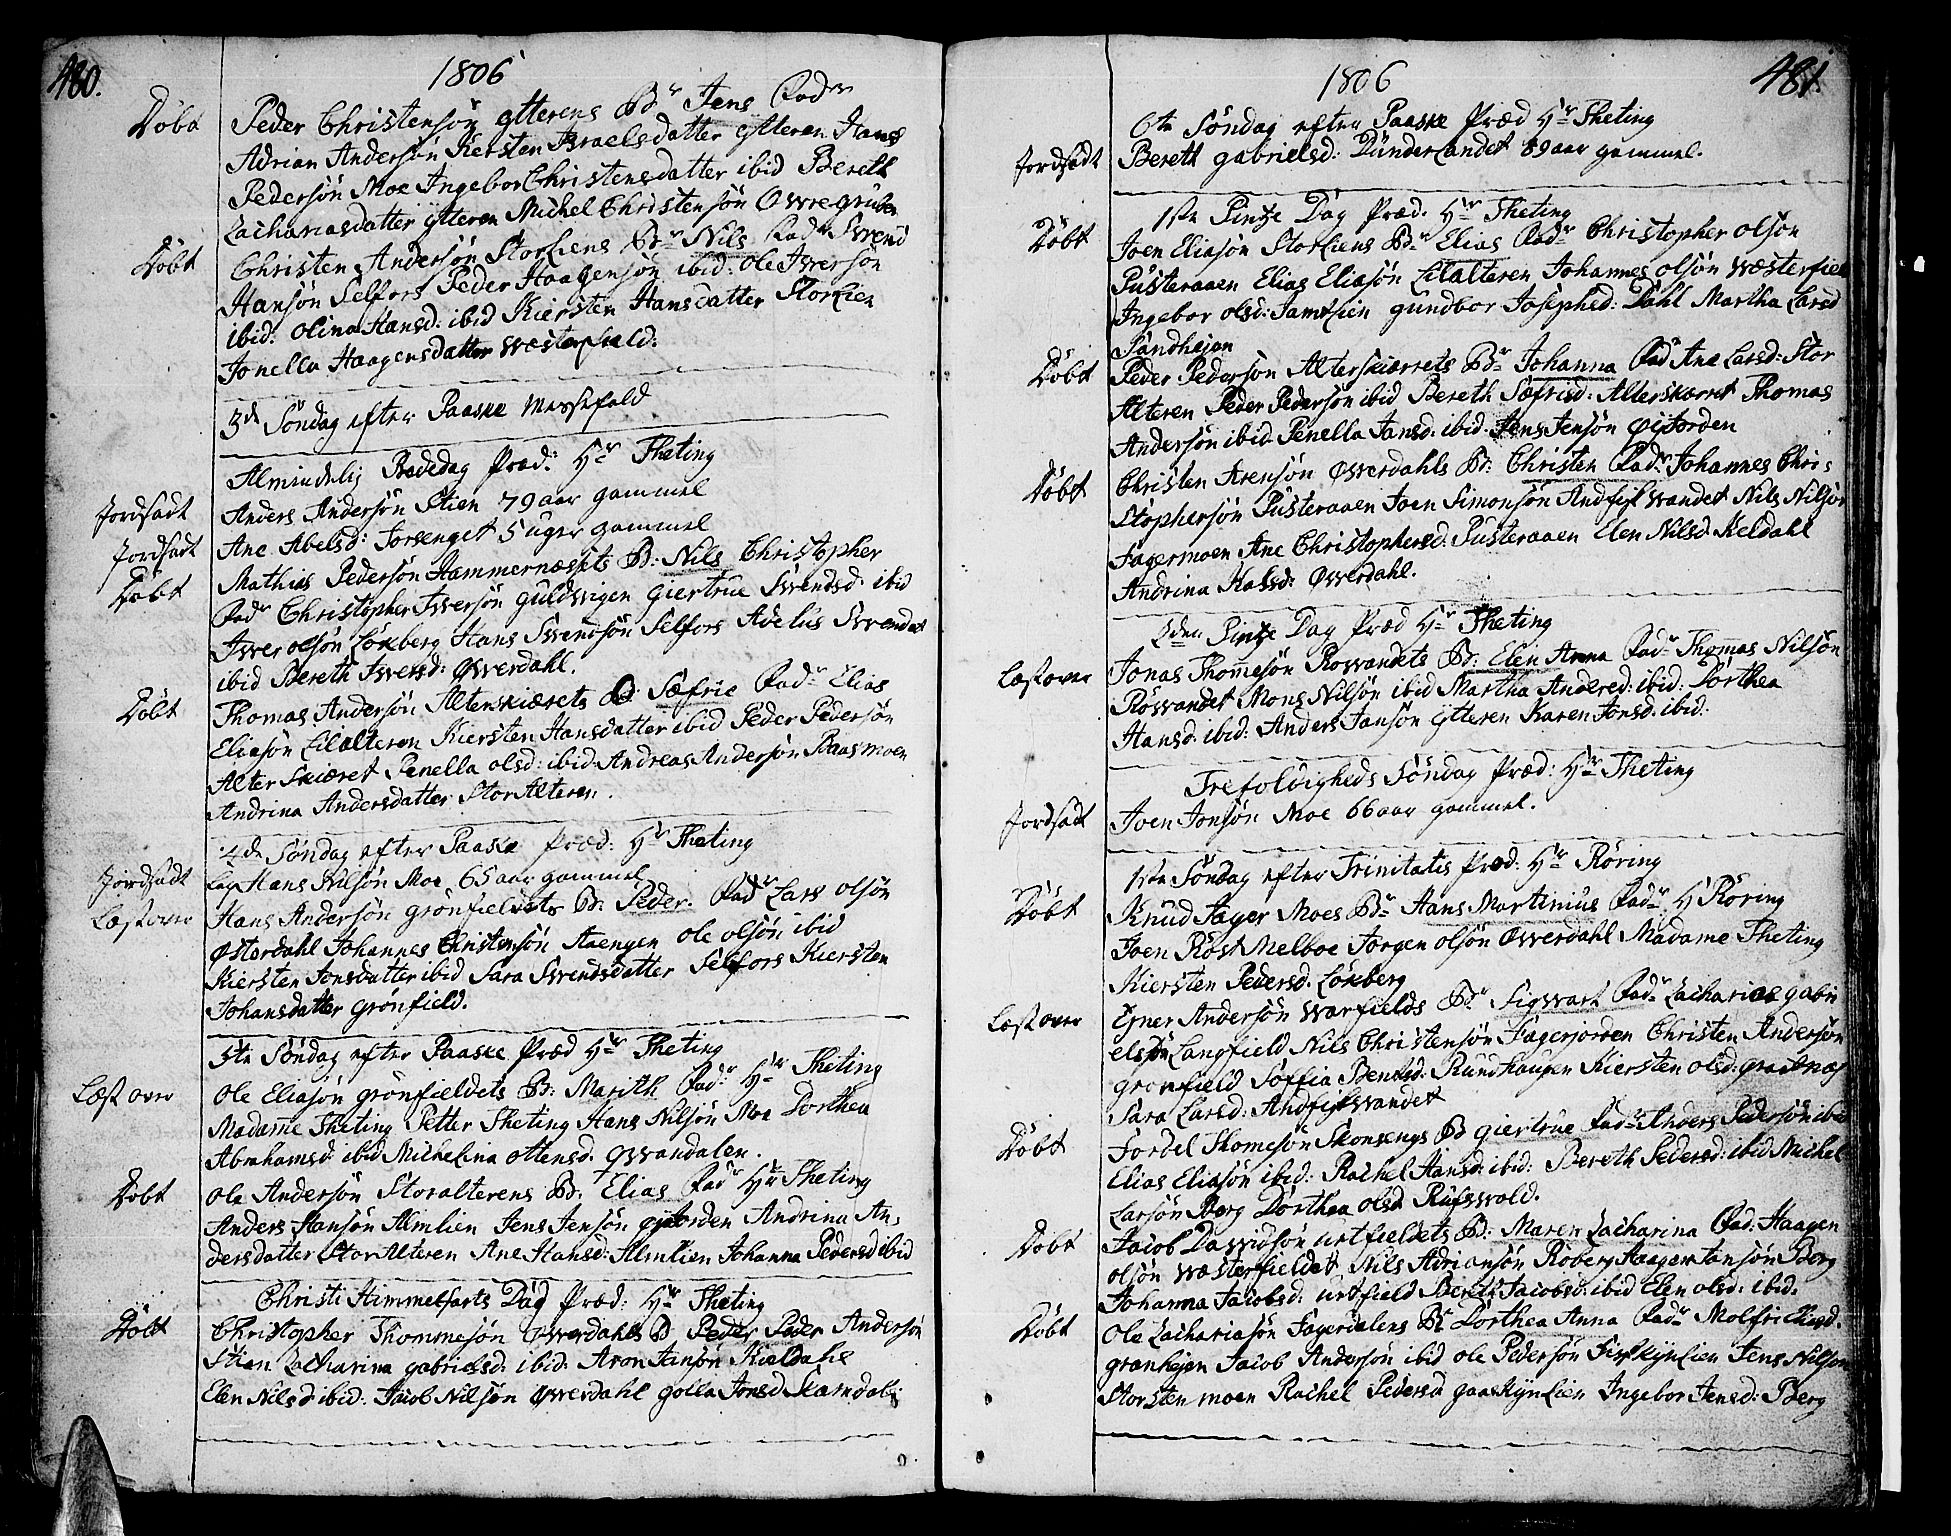 480.
1806
Döbt Peder Christensøn ytterens B:r Jens Fad:r
Adrian Andersøn Kiersten Israelsdatter ytteren Hans
Pedersøn Moe Ingebor Christensdatter ibid Bereth
Zachariasdatter ytteren Michel Christensøn Øvregruben
Döbt Christen Andersøn Storliens B:r Nils Fad:r Svend
Hansøn Selfors Peder Haagensøn ibid: Ole Iversøn
ibid: Olina Hansd: ibid Kiersten Hansdatter Storlien
Jonella Haagensdatter Westerfield.
3de Søndag efter Paaske Messefald
Almindelig Bededag Præd: Hr Theting
Jordfadt Anders Andersøn Stien 79 aar gammel
Jordfadt Ane Abelsd: Forsenget 5 uger gammel
Döbt Mathias Pedersøn Hammernæssets B: Nils Christopher
Fad:r Christopher Iversøn Guldvigen Giertrue Svendsd: ibid
Iver Olsøn Løkberg Hans Svendsøn Selfors Adelus Svendsd
ibid Bereth Iversd: Øverdahl.
Döbt Thomas Andersøn Alterskiærets B: Sæfrie Fad:r Elias
Eliasøn Lilalteren Kiersten Hansdatter ibid Peder Pedersøn
Alterskiæret Penella Olsd: ibid Andreas Andersøn Baasmoen
Andrina Andersdatter Stor Alteren.
4de Søndag efter Paaske Præd: Hr Theting
Jordfadt Hans Nilsøn Moe 65 aar gammel
Læst over Hans Andersøn Grønfieldets B: Peder. Fad:r Lars Olsøn
Østerdahl Johannes Christensøn Aaengen Ole Olsøn ibid
Kiersten Jonsdatter ibid Sara Svendsdatter Selfors Kiersten
Johansdatter Grønfield.
5te Søndag efter Paaske Præd Hr Theting
Læst over Ole Eliasøn Grønfieldets B: Marith Fad:r Hr Theting
Madame Theting Petter Theting Hans Nilsøn Moe Dorthea
Abrahamsd ibid Michelina Ottensd. Qvandalen.
Döbt Ole Andersøn Storalterens B: Elias Fad:r Hr Theting
Anders Hansøn Almlien Jens Jensøn Øijorden Andrina An,
dersdatter Stor Alteren Ane Hansd: Almlien Johanna Pedersd ibid
Christi Himmelfarts Dag Præd: Hr Theting
Döbt Christopher Thommesøn Øverdahls B Peder Peder Andersøn
Stien Zacharina Gabrielsd. ibid: Aron Jansøn Kieldahl
Elen Nilsd ibid. Jacob Nilsøn Øverdahl Golla Jonsd Skamdal:
481.
1806
6te Søndag efter Paaske Præd Hr Theting
Jordfadt Bereth Gabrielsd: Dunderlandet 89 aar gammel.
1ste Pintze Dag Præd. Hr Theting
Döbt Joen Eliasøn Storliens B:r Elias Fad:r Christopher Olsøn
Pusteraaen Elias Eliasøn Lilalteren Johannes Olsøn Wæsterfield
Ingebor Olsd: Jamtlien Gundbor Josephsd: Dahl Martha Larsd
Sandhejen
Döbt Peder Pedersøn Alterskiærrets B:r Johanna Fad Ane Larsd: Stor
Alteren Peder Pedersøn ibid Bereth Sæfrisd: Alterskærret Thomas
Andersøn ibid. Penella Jansd: ibid: Jens Jensøn Øijorden
Döbt Christen Arensøn Øverdahls B: Christen Fad:r Johannes Chri,
stophersøn Pusteraaen Joen Simonsøn Andfiskvandet Nils Nilsøn
Fagermoen Ane Christophersd: Pusteraaen Elen Nilsd Keldahl
Andrina Halsvd: Øverdahl.
2den Pintze Dag Præd Hr Theting
Læst over Jonas Thommesøn Rosvandets B: Elen Anna Fad:r Thommas Nilsøn
Rösvandet Mons Nilsøn ibid Martha Andersd: ibid: Dorthea
Hansd. ibid: Anders Jansøn Ytteren Karen Jonsd. ibid.
Trefoldigheds Søndag Præd: Hr Theting
Jordfadt Joen Jonsøn Moe 66 aar gammel.
1ste Søndag efter Trinitatis Præd. Hr Röring
Döbt Knud Fager Moes B:r Hans Martinius Fad:r Hr Röring
Joen Röst Melboe Jørgen Olsøn Øverdahl Madame Theting
Kiersten Pedersd. Løkberg
Læst over Ejner Andersøn Warfields B:r Sigvart Fad:r Zacharias Gabri
elsøn Langfield Nils Christensøn Fagerjorden Christen Andersøn
Grønfield Søffia Bentsd: Rundhaugen Kiersten Olsd: Graatnæs
Sara Larsd: Andfiskvandet
Döbt Tordel Thomesøn Skonsengs B Giertrue Fad:r Anders Pedersøn ibid
Elias Eliasøn ibid: Rachel Hansd: ibid: Bereth Pedersd: ibid Michel
Larsøn Berg Dorthea Olsd Rufsvold.
Döbt Jacob Davidsøn Urtfieldets B: Maren Zacharina Fad: Haagen
Olsøn Wæsterfieldet Nils Adriansøn Roberg Haagen Jansøn Berg
Johanna Jacobsd: Urtfield Bereth Jacobsd: ibid Elen Olsd: ibid.
Döbt Ole Zachariasøn Fagerdalens B: Dorthea Anna Fad:r Molfrid
Granhejen Jacob Andersøn ibid Ole Pedersøn Jens Nilsøn
Storstenmoen Rachel Pedersd Ingebor Jensd: Berg